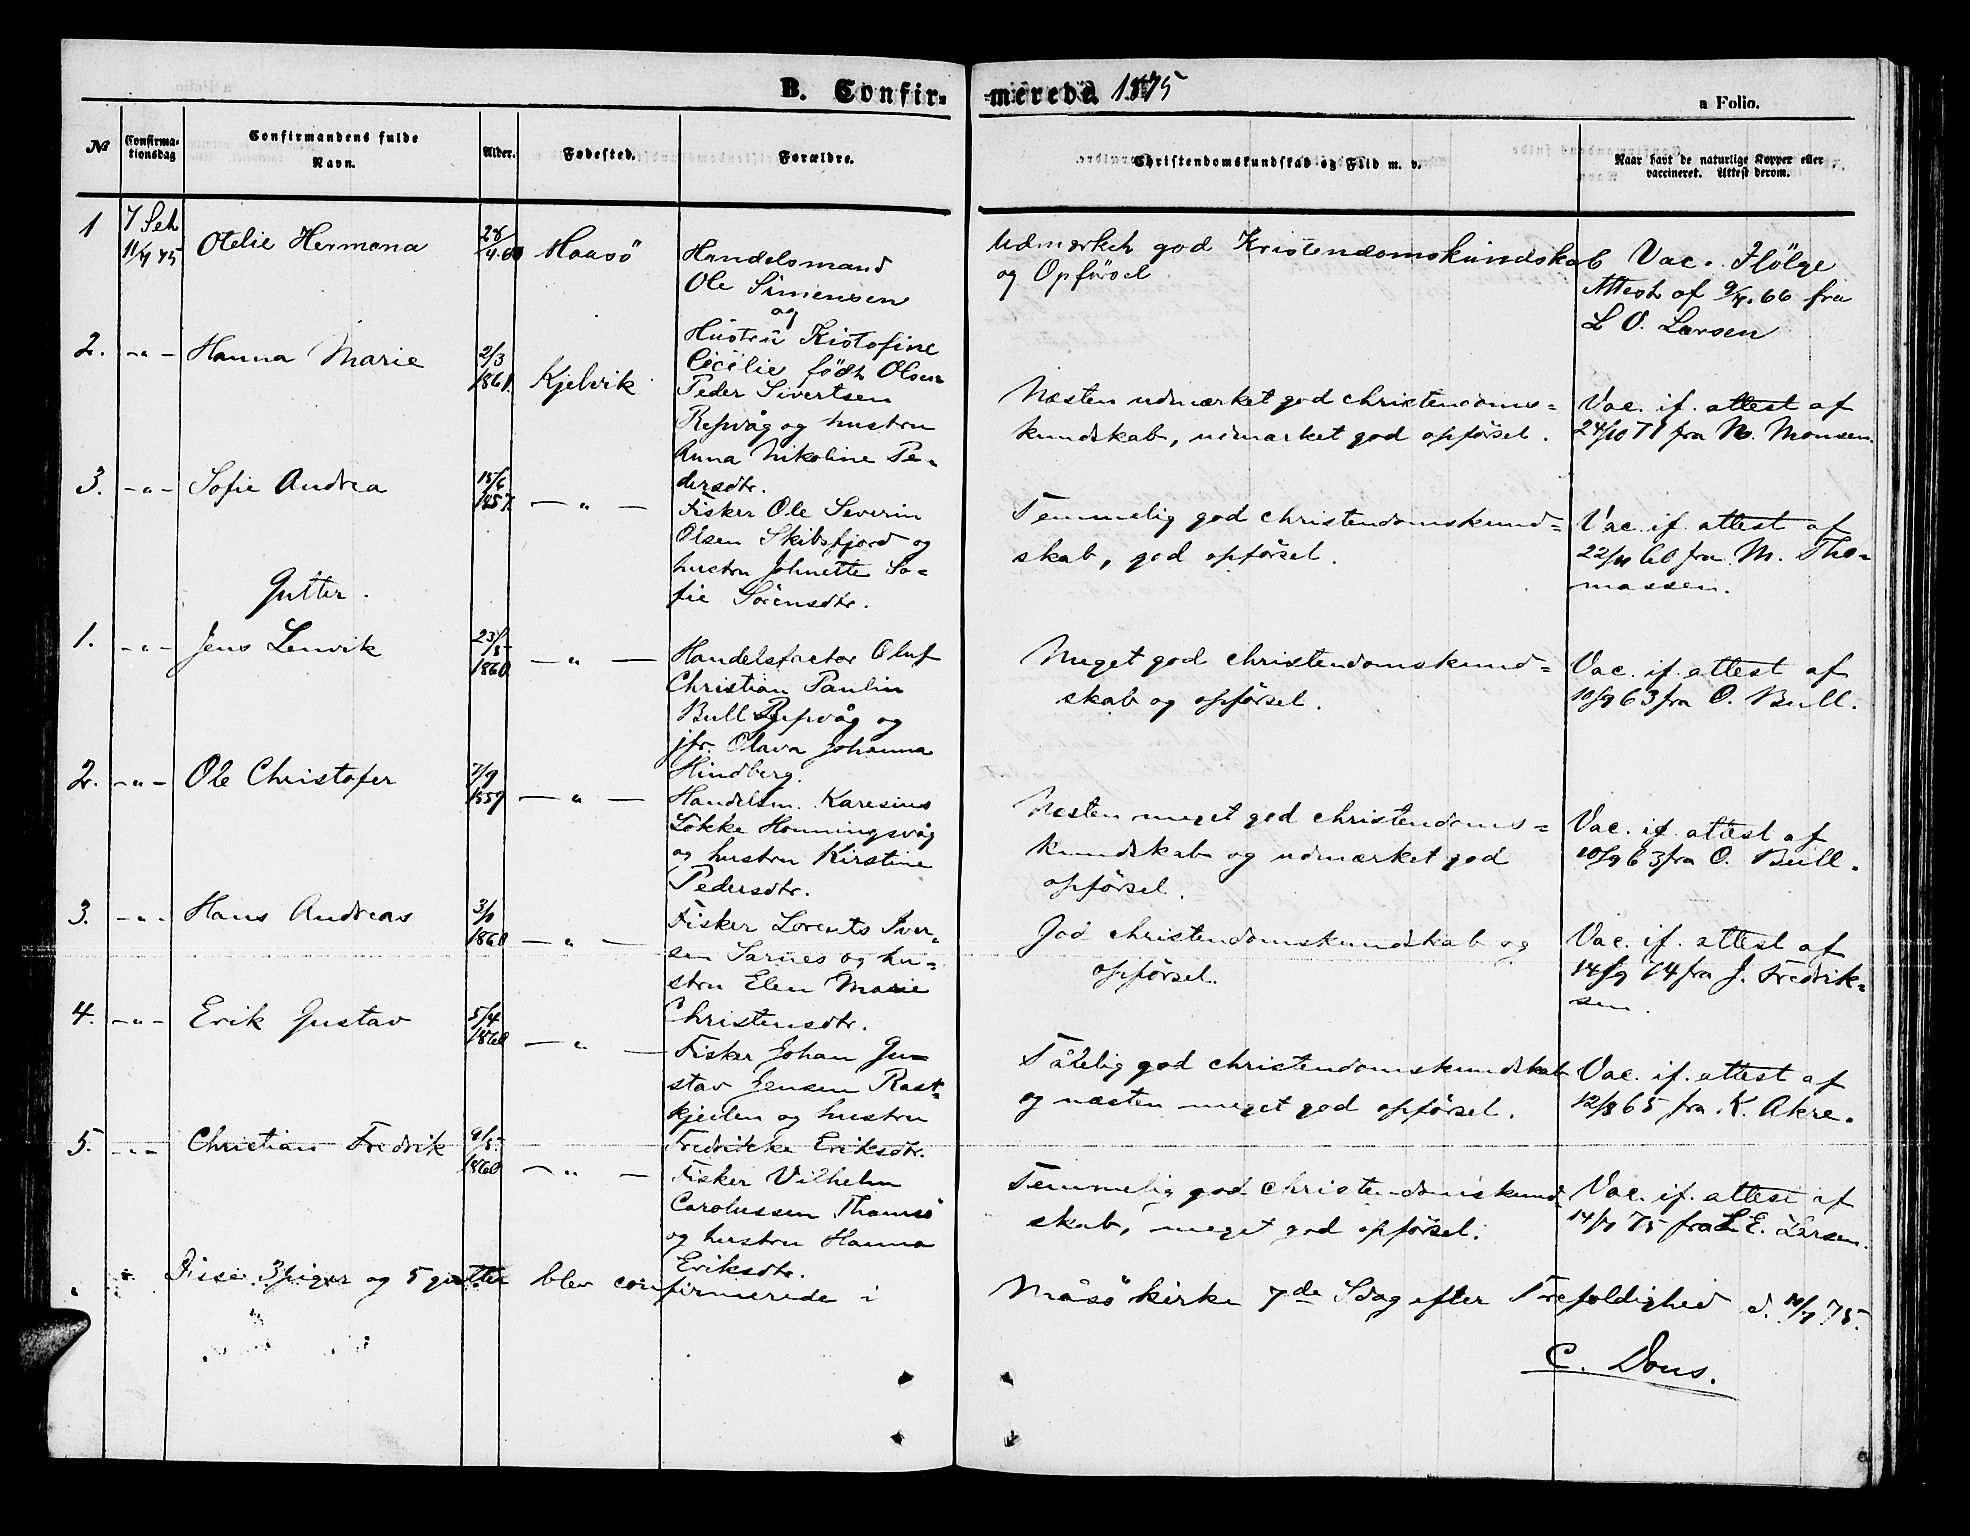 B. Confir- merede. 1875
a Folio.
No
Confirma-
tionsdag
Confirmandens fulde
Navn.
Alder.
Fødested.
Forældre.
Christendomskundskab og Flid m. v.
Naar havt de naturlige Kopper eller
vaccineret. Attest derom.
1
11/7 75
Otelie Hermana
Maasö
Handelsmand
Ole Simensen
og
Hustru Kistofine
Cecilie født Olsen
Udmærket god Kristendomskundskab
og Opførsel
Vac. Ifølge
Attest af 9/7. 66 fra
L O. Larsen
2. -"- Hanna Marie
2/3
1861.
Kjelvik
Peder Sivertsen
Repvåg og hustru
Anna Nikoline Pe-
dersdtr.
Næsten udmærket god christendoms=
kundskab, udmærket god opførsel.
Vac. if. attest af
24/10 71 fra N. Monsen.
3. -"- Sofie Andrea
15/6
1857.
— " —
Fisker Ole Severin
Olsen Skibsfjord og
hustru Johnette So-
fie Sörensdtr.
Temmelig god christendomskund=
skab, god opførsel.
Vac. if. attest af
fra M. Tho-
massen.
Gutter.
1. -"- Jens Lenvik
1860
— " —
Handelsfactor Oluf
Christian Paulin
Bull Repvåg og
jfr. Olava Johanna
Hindberg.
Meget god christendomskund=
skab og opførsel.
Vac. if. attest af
10/9 63 fra O. Bull.
2. -"- Ole Christofer
7/9
1859
— " —
Handelsm. Karesius
Løkke Honningsvåg
og hustru Kirstine
Pedersdtr.
Næsten meget god christendoms=
kundskab og udmærket god
opførsel.
Vac. if. attest af
10/9 63 fra O. Bull.
3. -"- Hans Andreas
1860
— " —
Fisker Lorents Iver-
sen Sarnes og hu-
stru Elen Marie
Christensdtr.
God christendomskundskab og
opførsel.
Vac. if. attest af
14/9 74 fra J. Fredrik=
sen.
4. -"- Erik Gustav
5/4
1860
— " —
Fisker Johan Gu-
stav Jensen Kast-
kjeilen og hustru
Fredrikke Eriksdtr.
Tålelig god christendomskundskab
og næsten meget god opførsel.
Vac. if. attest af
12/8 65 fra K. Akre.
5. -"- Christian Fredrik
9/5
1860
— " —
Fisker Vilhelm
Carolussen Thamsö
og hustru Hanna
Eriksdtr.
Temmelig god christendomskund
skab, meget god opførsel.
Vac. if. attest af
14/7 75 fra L E. Larsen.
Disse 3 piger og 5 gutter blev confirmerede i Måsö kirke 7de Sdag efter Trefoldighed d. 11/7 75.
C. Dons.